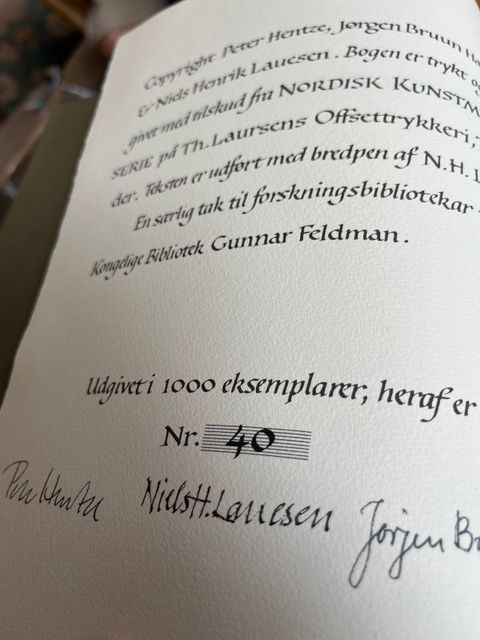 Copyright Peter Hentze, Jørgen Bruun
& Niels Henrik Lauesen. Bogen er trykt
givet med tilskud fra NORDISK KUNSTM
SERIE på Th. Laursens Offsettrykkeri,
der. Teksten er udført med bredpen af N.H.
En særlig tak til forskningsbibliotekar
Kongelige Bibliotek Gunnar Feldman.
Udgivet i 1000 eksemplarer, heraf er
Nr. 40
Niels H. Lauesen Jørgen